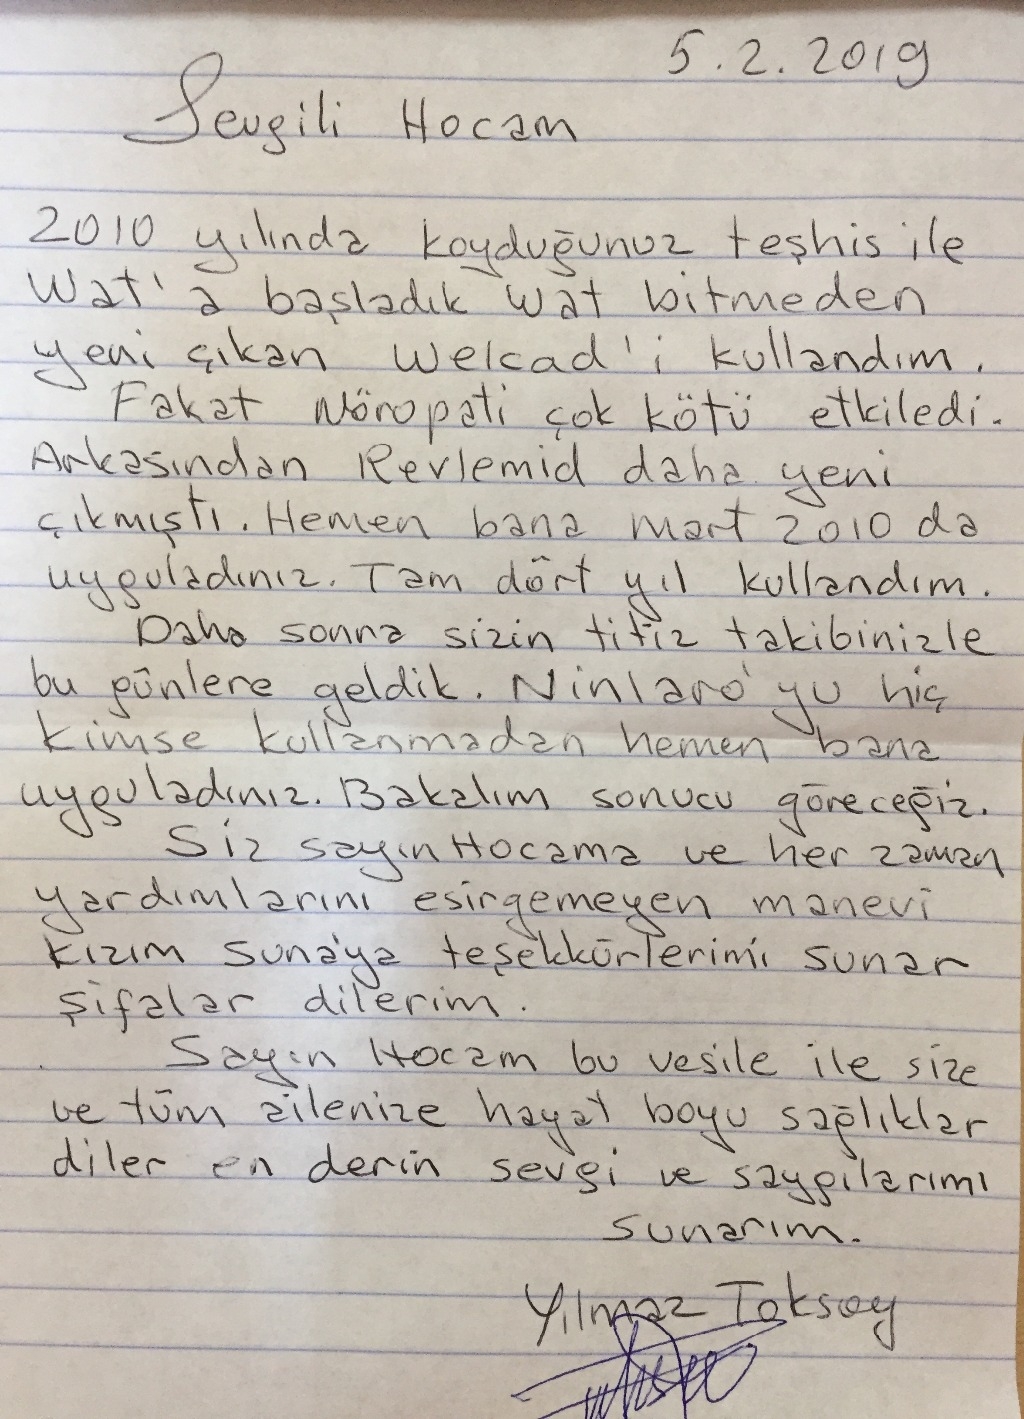 5.2.2019
Sevgili Hocam
2010 yılında koyduğunuz teşhis ile
Wat'a başladık Wat bitmeden
yeni çıkan Welcad'i kullandım.
Fakat Nöropati çok kötü etkiledi.
Arkasından Revlemid daha yeni
çıkmıştı. Hemen bana Mart 2010 da
uyguladınız. Tam dört yıl kullandım.
Daha sonra sizin titiz takibinizle
bu günlere geldik. Ninlaro'yu hiç
kimse kullanmadan hemen bana
uyguladınız. Bakalım sonucu göreceğiz.
Siz sayın Hocama ve her zaman
yardımlarını esirgemeyen manevi
kızım Suna'ya teşekkürlerimi sunar
şifalar dilerim.
Sayın Hocam bu vesile ile size
ve tüm ailenize hayat boyu sağlıklar
diler en derin sevgi ve saygılarımı
sunarım.
Yılmaz Toksoy